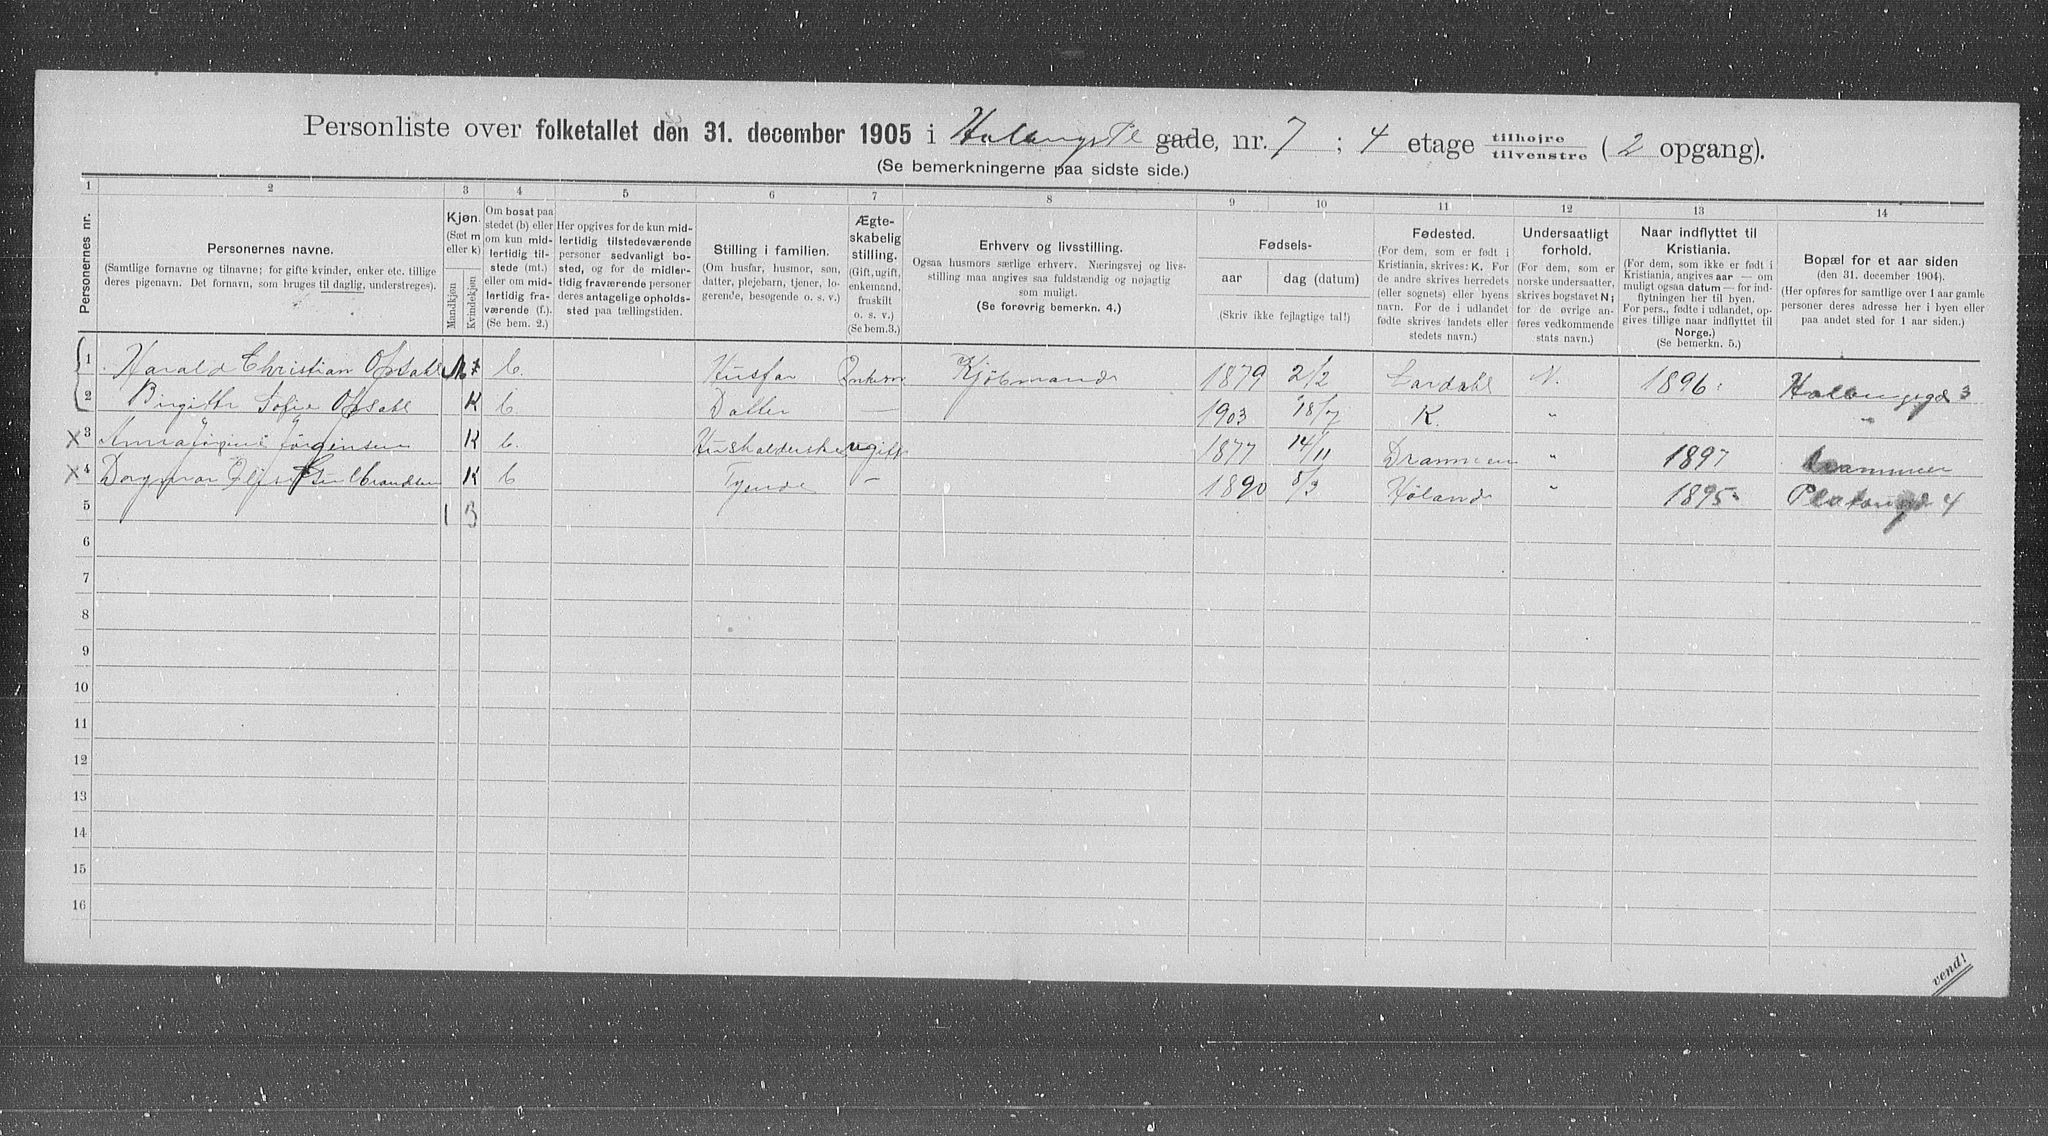 Personliste over folketallet den 31. december 1905 i gade, nr. 7 ; 4 etage tilhøjre tilvenstre ( 2 opgang).
(Se bemerkningerne paa sidste side.)
1 2 3 4 5 6 7 8 9 10 11 12 13 14
Personernes nr.
Personernes navne.
(Samtlige fornavne og tilnavne; for gifte kvinder, enker etc. tillige
deres pigenavn. Det fornavn, som bruges til daglig, understreges).
Kjøn.
(Sæt m
eller k)
Mandkjøn
Kvindekjøn
Om bosat paa
stedet (b) eller
om kun mid-
lertidig til-
stede (mt.)
eller om mid-
lertidig fra-
værende (f.).
(Se bem. 2.)
Her opgives for de kun mid-
lertidig tilstedeværende
personer sedvanlig bo-
sted, og for de midler-
tidig fraværende personer
deres antagelige opholds-
sted paa tællingstiden.
Stilling i familien.
(Om husfar, husmor, søn,
datter, plejebarn, tjener, lo-
gerende, besøgende o. s. v.)
Ægte-
skabelig
stilling.
(Gift, ugift,
enkemand,
fraskilt
o. s. v.)
(Se bem.3.)
Erhverv og livsstilling.
Ogsaa husmors særlige erhverv. Næringsvej og livs-
stilling maa angives saa fuldstændig og nøjagtig
som muligt.
(Se forøvrig bemerkn. 4.)
Fødsels-
aar
dag (datum)
(Skriv ikke fejlagtige tal!)
Fødested.
(For dem, som er født i
Kristiania, skrives: K. For
de andre skrives herredets
(eller sognets) eller byens
navn. For de i udlandet
fødte skrives landets eller
stedets navn.)
Undersaatligt
forhold.
(For dem, som er
norske undersaatter,
skrives bogstavet N;
for de øvrige an-
føres vedkommende
stats navn.)
Naar indflyttet til
Kristiania.
(For dem, som ikke er født i
Kristiania, angives aar — om
muligt ogsaa datum — for ind-
flytningen her til byen.
For pers., fødte i udlandet, op-
gives tillige naar indflyttet til
Norge.)
(Se bemerkn. 5.)
Bopæl for et aar siden
(den 31. december 1904).
(Her opføres for samtlige over 1 aar gamle
personer deres adresse her i byen eller
paa andet sted for 1 aar siden.)
1 Harald Christian Opsahl M b. Husfar Enkem Kjøbmand 1879 2/2 Lardahl N. 1896.
2 Birgitte Sofie Opsahl K b. Datter — 1903 18/7 K. " "
x 3 Anna Jørgensen K b. ugift 1877 14/11 Drammen " 1897 Drammen
x 4 K b Tyende — 1890 8/3 Høland " 1895 4
5 1 3
6
7
8
9
10
11
12
13
14
15
16
vend!